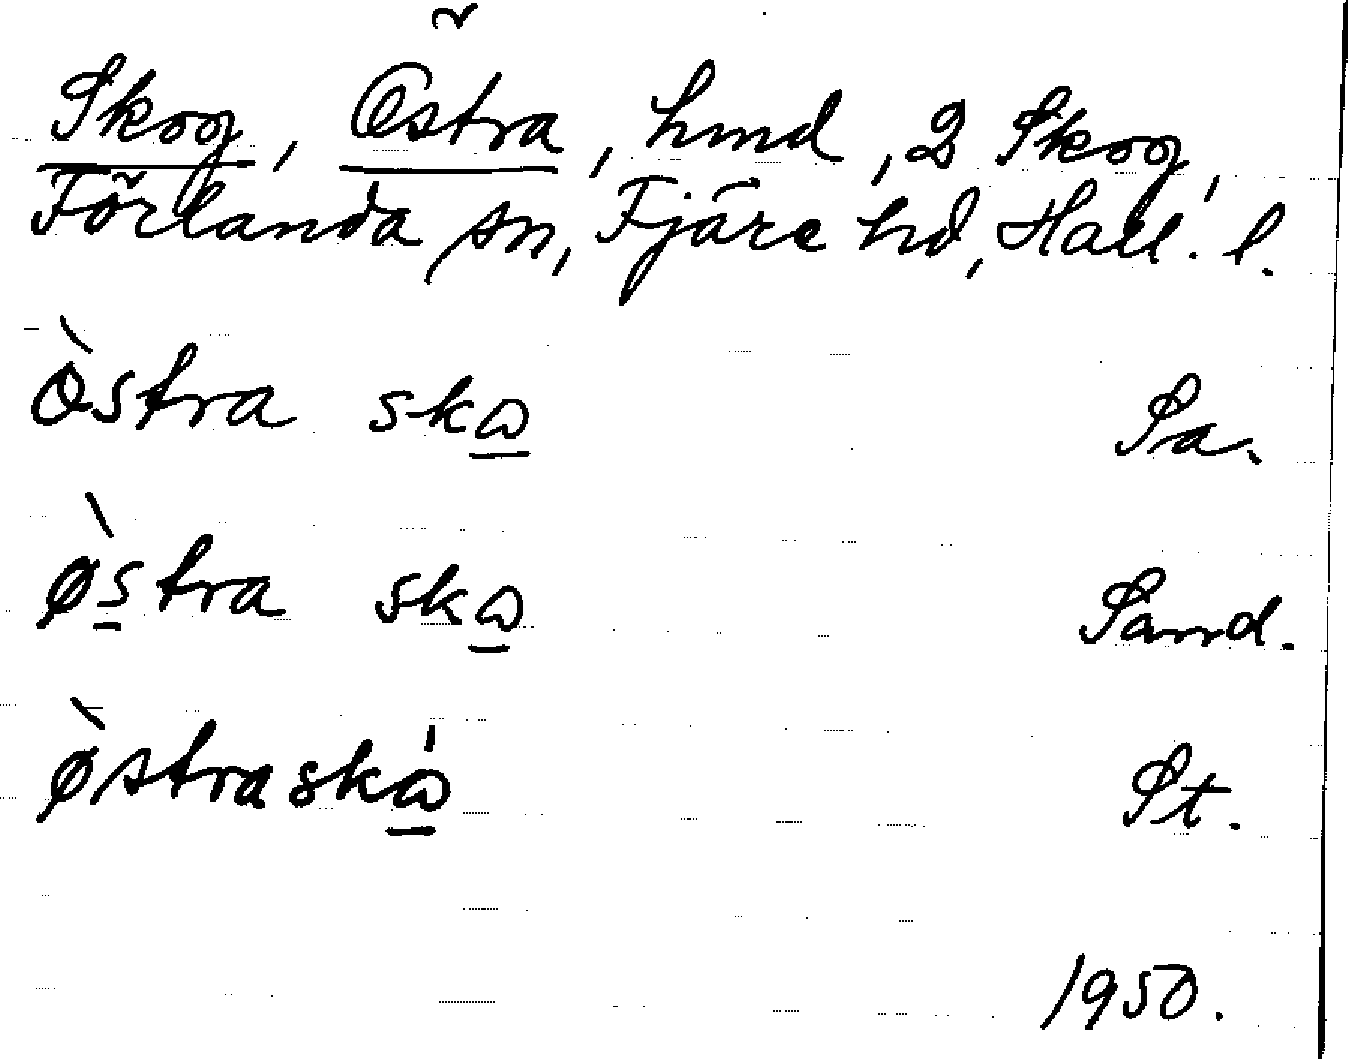 Skog, Östra, hmd, 2 Skog,
Förlanda sn, Fjäre hd, Hall. l.
ö̀stra skɷ̲ Sa.
ø̀s̲tra skɷ̲ Sand.
ø̀straskɷ̲́ St.
1950.